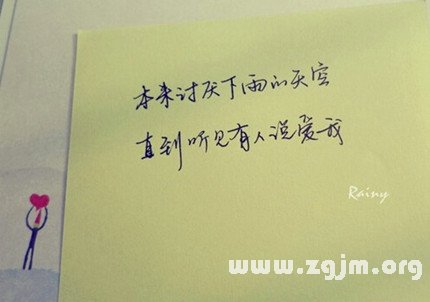 本来讨厌下雨的天空
直到听见有人说爱我
Rainy
www.zgjm.org